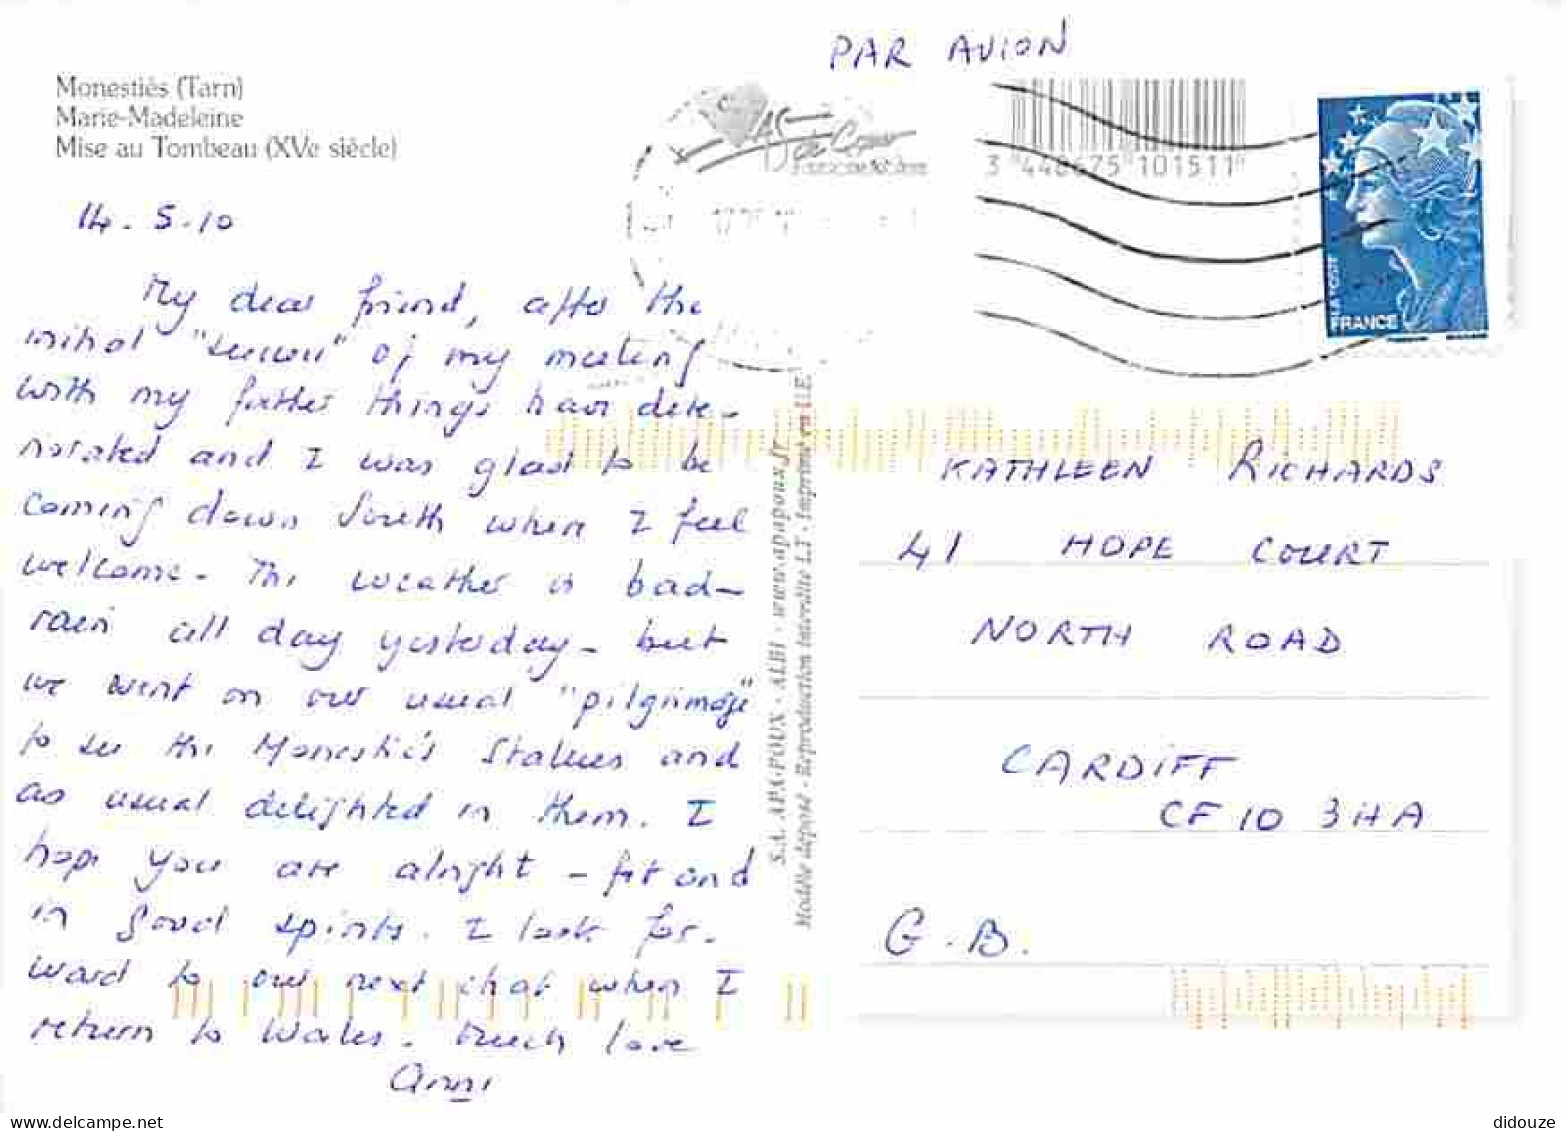 PAR AVION
Monestiés (Tarn)
Marie-Madeleine
Mise au Tombeau (XVe siècle)
3 448675 101511
LA POSTE
FRANCE
14.5.10
My dear friend, after the
initial " " of my meeting
with my father things have dete-
riorated and I was glad to be
coming down South when I feel
welcome. The weather is bad -
rain all day yesterday - but
we went on our usual "pilgrimage"
to see the Monestiés Statues and
as usual delighted in them. I
hope you are alright - fit and
in good spirits. I look for-
ward to our next chat when I
return to Wales. Much love
Anni
S.A. APA-POUX - ALBI - www.apapoux.fr
Modèle déposé - Reproduction interdite LT - Imprimé en U.E.
KATHLEEN RICHARDS
41 HOPE COURT
NORTH ROAD
CARDIFF
CF10 3HA
G.B.
didouze